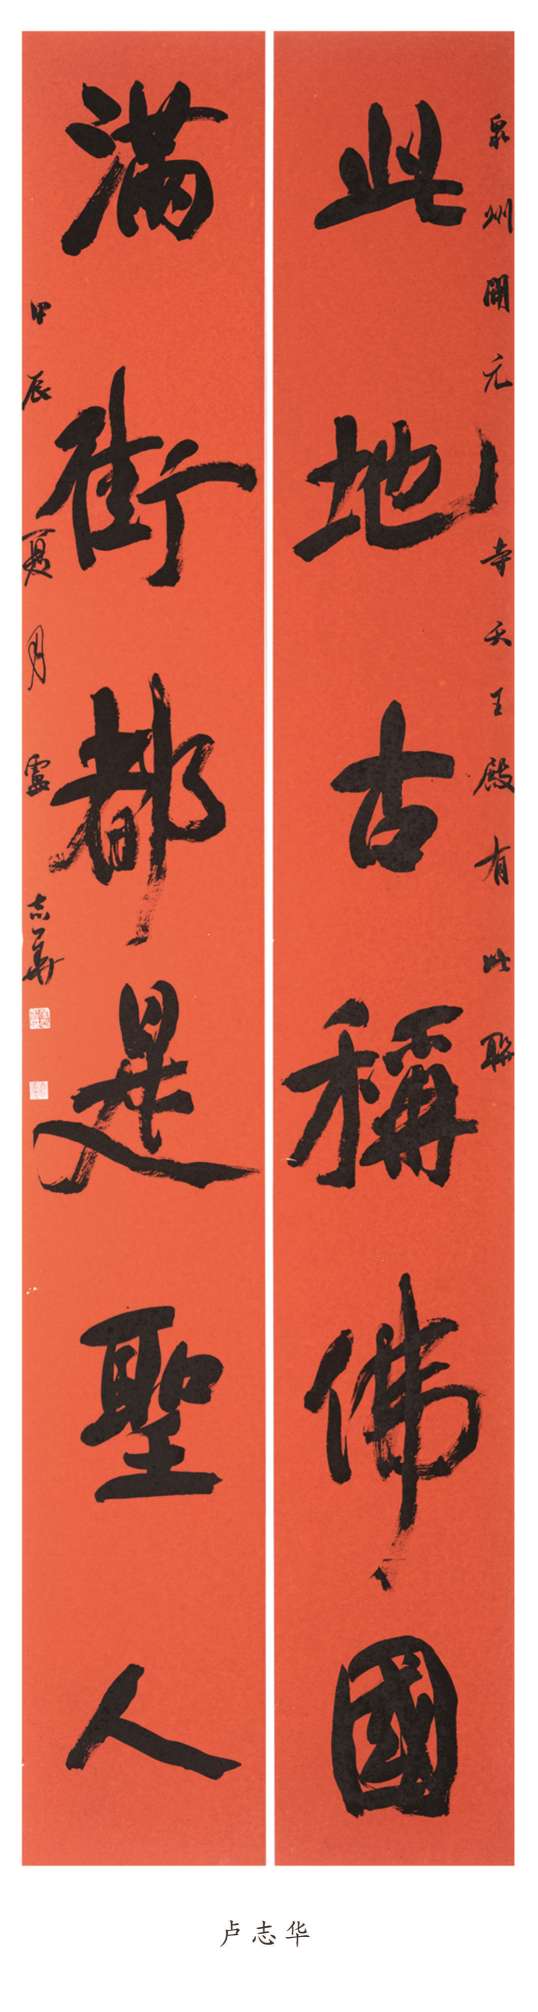 泉州開元寺天王殿有此聯
此地古稱佛國
滿街都是聖人
甲辰夏月盧志華
卢志华